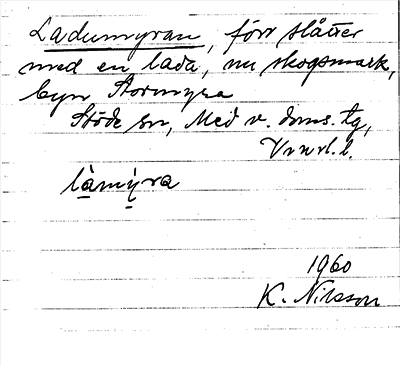 Ladumyran, förr slåtter
med en lada, nu skogsmark,
byn Stormyra
Stöde sn, Med v. doms. tg,
Vnrl. l.
làmýra
1960
K. Nilsson